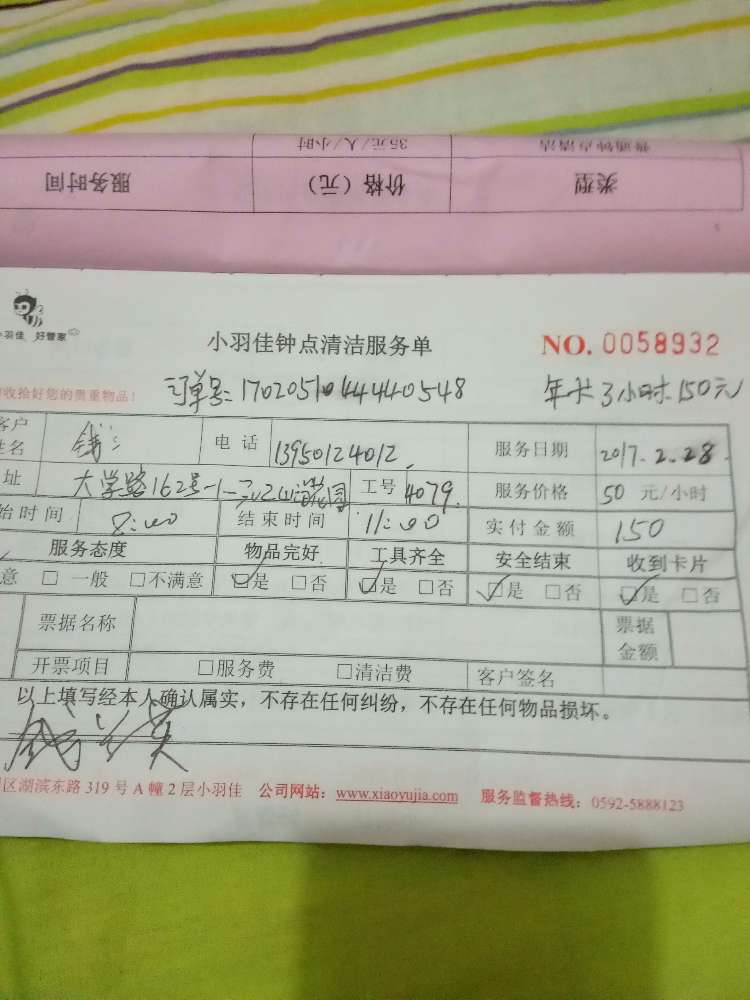 普通钟点清洁 35元/人/小时
类型 价格（元） 服务时间
小羽佳 好管家
小羽佳钟点清洁服务单 NO. 0058932
收拾好您的贵重物品！ 订单号: 17020510444440548 年卡3小时.150元
客户姓名 钱 电话 13950124012. 服务日期 2017.2.28.
址 大学路162号-1 工号 4079. 服务价格 50 元/小时
始时间 8:00 结束时间 11:00 实付金额 150
服务态度 物品完好 工具齐全 安全结束 收到卡片
意 □ 一般 □不满意 ☑是 □否 ☑是 □否 ☑是 □否 ☑是 □否
票据名称 票据金额
开票项目 □服务费 □清洁费 客户签名
以上填写经本人确认属实，不存在任何纠纷，不存在任何物品损坏。
区湖滨东路 319 号 A 幢 2 层小羽佳 公司网站：www.xiaoyujia.com 服务监督热线：0592-5888123